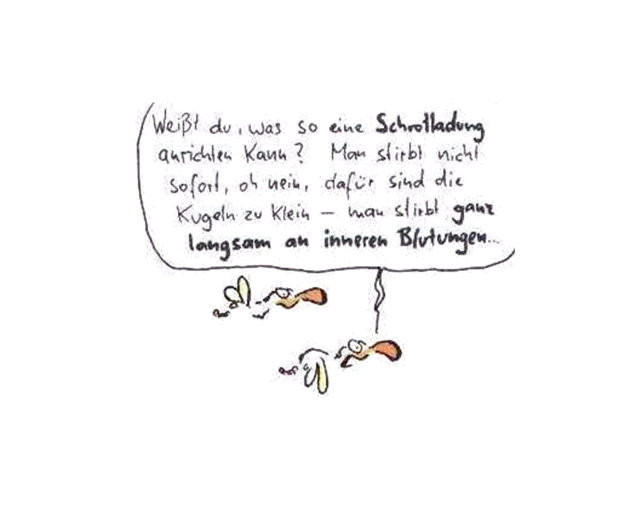 Weißt du, was so eine Schrotladung
anrichten kann? Man stirbt nicht
sofort, oh nein, dafür sind die
Kugeln zu klein – man stirbt ganz
langsam an inneren Blutungen...